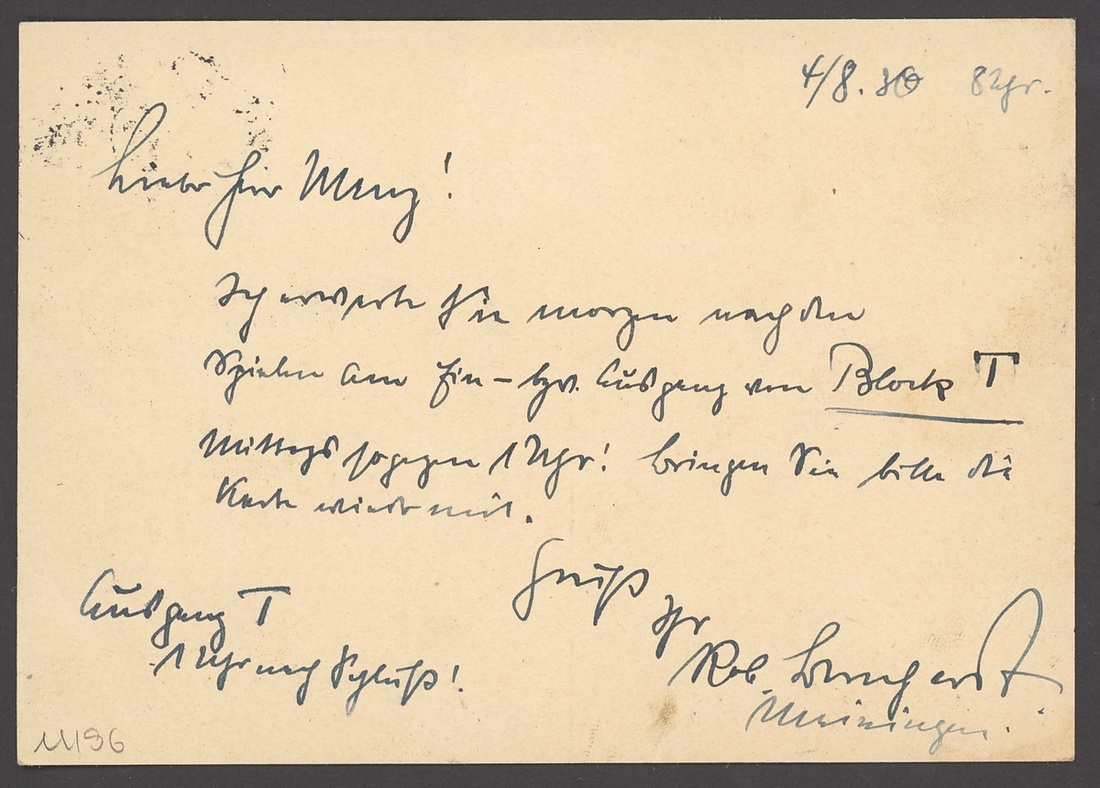 4/8.36 8 Uhr.
Lieber Herr Menz!
Ich erwarte Sie morgen nach den
Spielen am Ein- bzw. Ausgang von Block T
Mittags so gegen 1 Uhr! bringen Sie bitte die
Karte wieder mit.
Gruß
Ihr
Rob.
Meiningen.
Ausgang T
1 Uhr nach Schluß!
11196